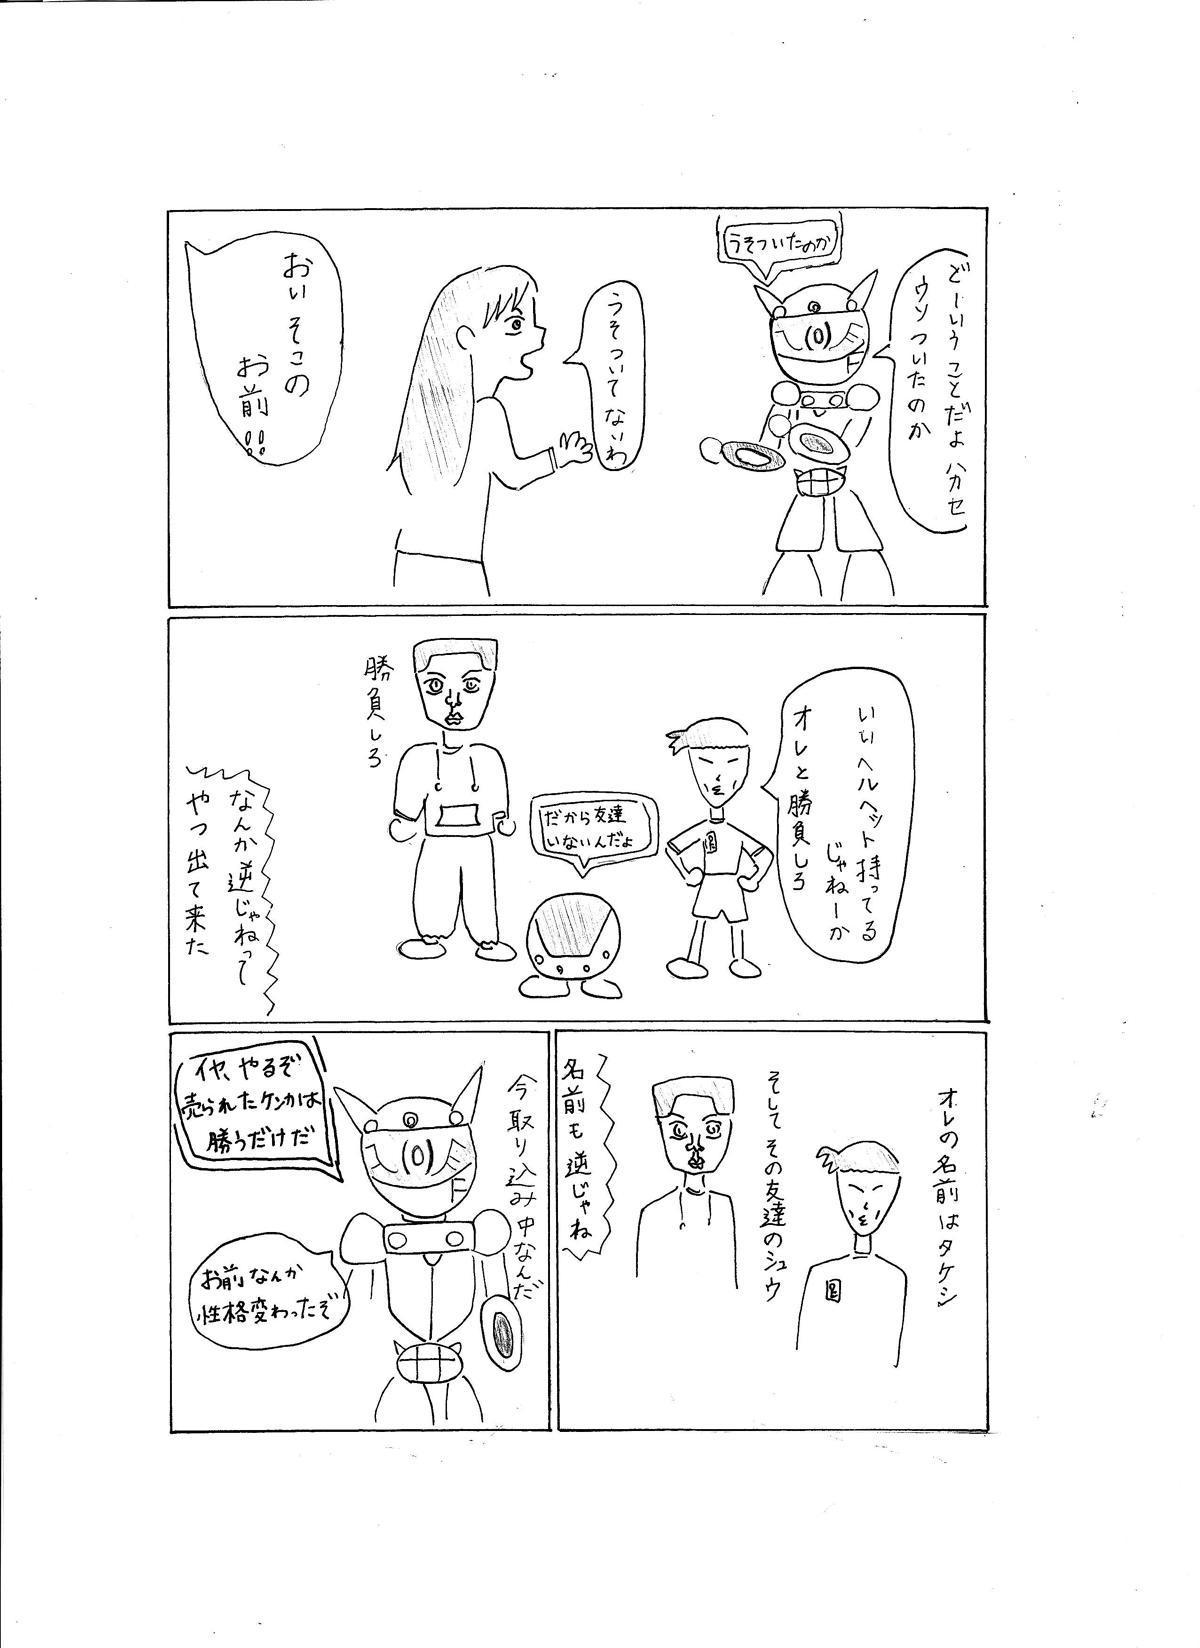 どーいうことだよ ハカセ
ウソついたのか
うそついたのか
うそついてないわ
おい そこの
お前!!
いいヘルメット持ってる
じゃねーか
オレと勝負しろ
だから友達
いないんだよ
勝負しろ
なんか逆じゃねって
やつ出て来た
オレの名前はタケシ
そして その友達のシュウ
名前も逆じゃね
今取り込み中なんだ
イヤ、やるぞ
売られたケンカは
勝つだけだ
お前なんか
性格変わったぞ